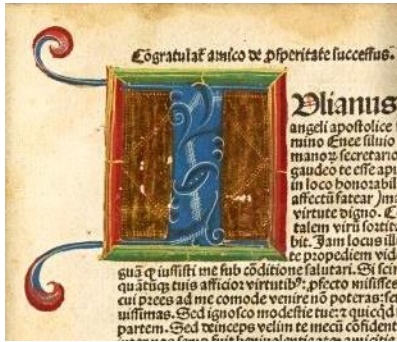 Cōgratulat̄ amico de ꝓsperitate successus.
Ulianus
angeli apostolice
mino Enee siluio
manoꝝ secretario
gaudeo te esse apu
in loco honorabil
affectū fatear
virtute digno. C
talem virū sortit
bit. Jam locus ill
te propediem vid
guā ꝙ iussisti me sub cōditione salutari. Si scir
quātūqꝫ tuis afficior virtutibꝰ: ꝓfecto misisses
cui prees ad me comode venire nō poteras: sc
uissimas. Sed ignosco modestie tue: ⁊ quicqd
partem. Sed deinceps velim te mecū cōfident